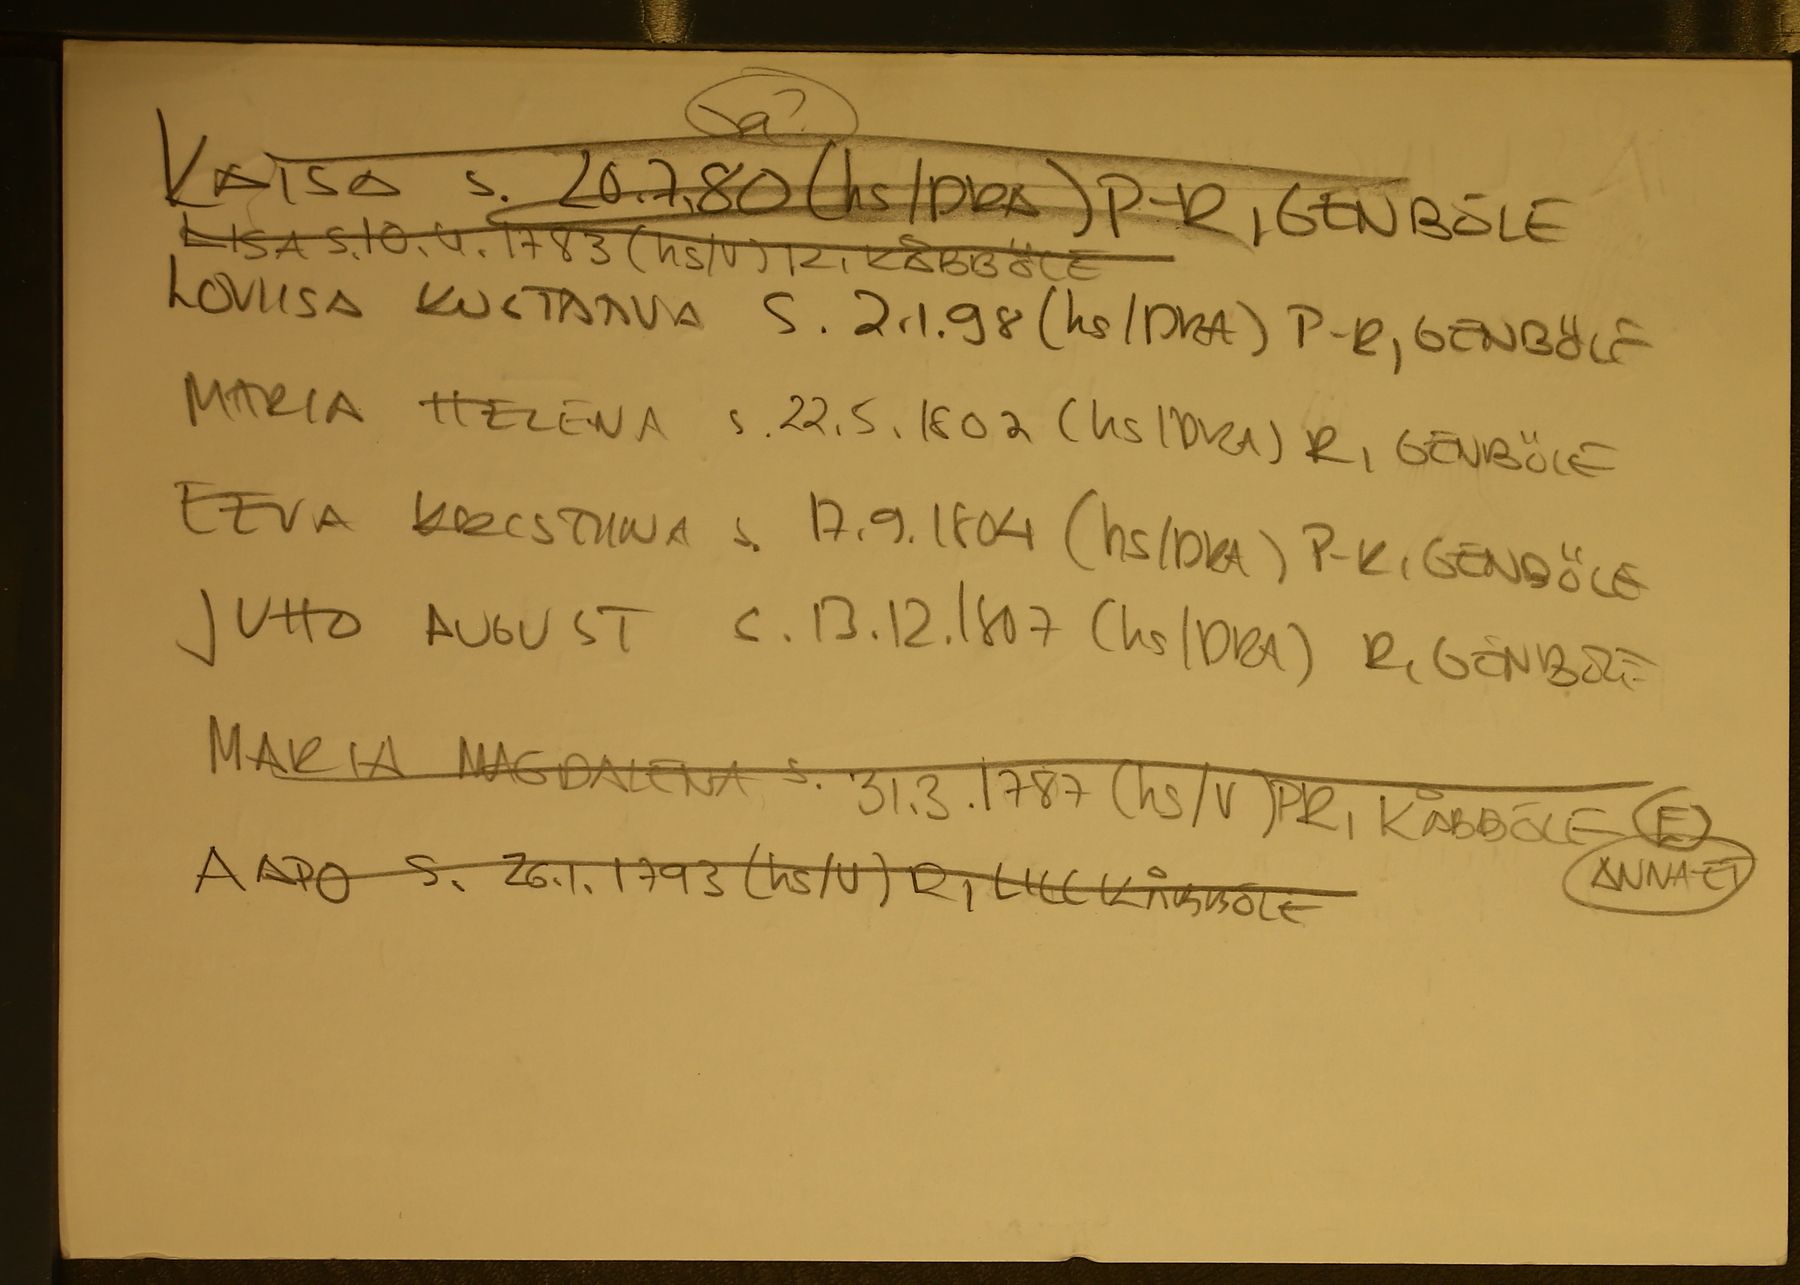 Ja?
KAISA s. 20.7.80 (hs/DRA) P-R, GENBÖLE
LIISA S.10.4.1783 (hs/V) R, KÅBBÖLE
LOVIISA KUSTAAVA S. 2.1.98 (hs/DRA) P-R, GENBÖLE
MARIA HELENA s. 22.5.1802 (hs/DRA) R, GENBÖLE
EEVA KRISTIINA s. 17.9.1804 (hs/DRA) P-R, GENBÖLE
JUHO AUGUST S. 13.12.1807 (hs/DRA) R, GENBÖLE
MARIA MAGDALENA s. 31.3.1787 (hs/V) PR, KÅBBÖLE E
AAPO S. 26.1.1793 (hs/V) R, LILL KÅBBÖLE